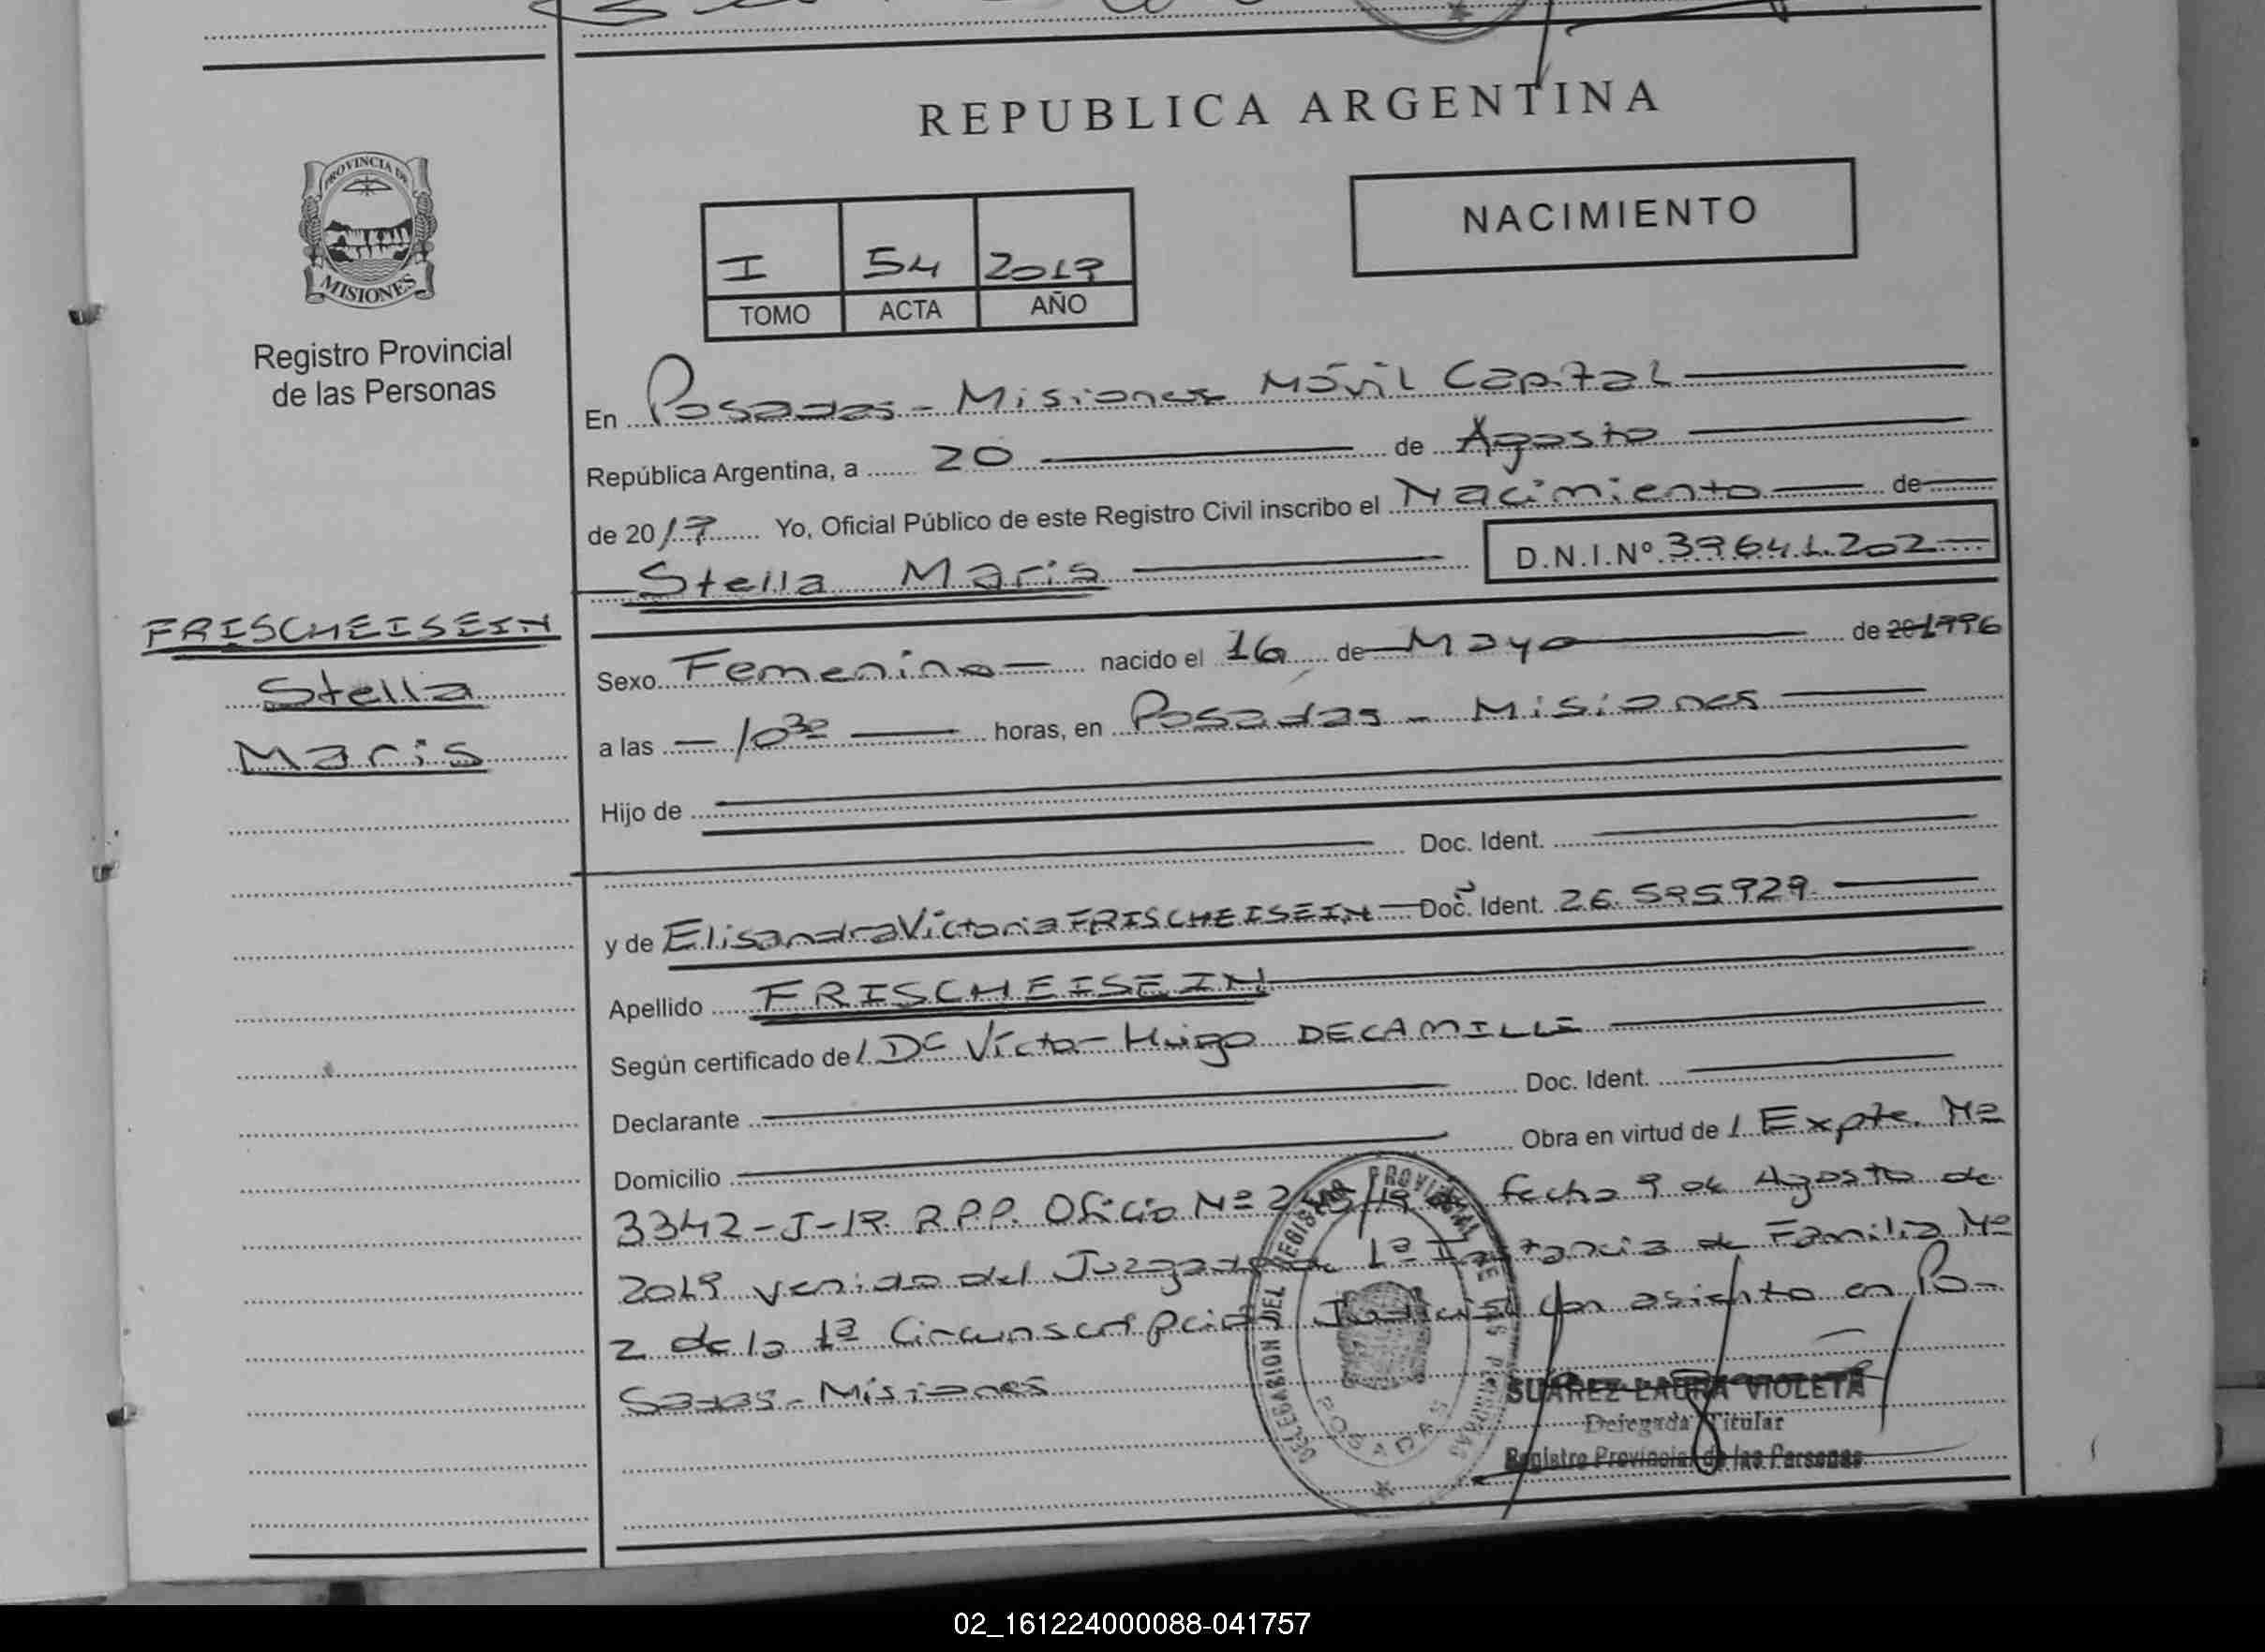 REPUBLICA ARGENTINA
PROVINCIA DE
MISIONES
Registro Provincial
de las Personas
NACIMIENTO
I 54 2019
TOMO ACTA AÑO
En Posadas - Misiones Móvil Capital
República Argentina, a 20 de Agosto
de 2019 Yo, Oficial Público de este Registro Civil inscribo el Nacimiento de
Stella Maris D.N.I.Nº 39641.202
FRISCHEISEIN
Stella
Maris
Sexo Femenino nacido el 16 de Mayo de 20 1996
a las 10 30 horas, en Posadas - Misiones
Hijo de
Doc. Ident.
y de Elisandra Victoria FRISCHEISEIN Doc. Ident. 26.595.929
Apellido FRISCHEISEIN
Según certificado de / Dr Víctor Hugo DECAMILLE
Declarante Doc. Ident.
Domicilio Obra en virtud de / Expte. Nº
3342-J-19 R.P.P. Oficio Nº fecha 9 de Agosto de
2019 venido del Juzgado de 1ª Instancia de Familia Nº
2 de la 1ª Circunscripción Judicial con asiento en Po-
sadas - Misiones
DELEGACION DEL REGISTRO PROVINCIAL DE LAS PERSONAS
POSADAS
SUAREZ LAURA VIOLETA
Delegada Titular
Registro Provincial de las Personas
02_161224000088-041757